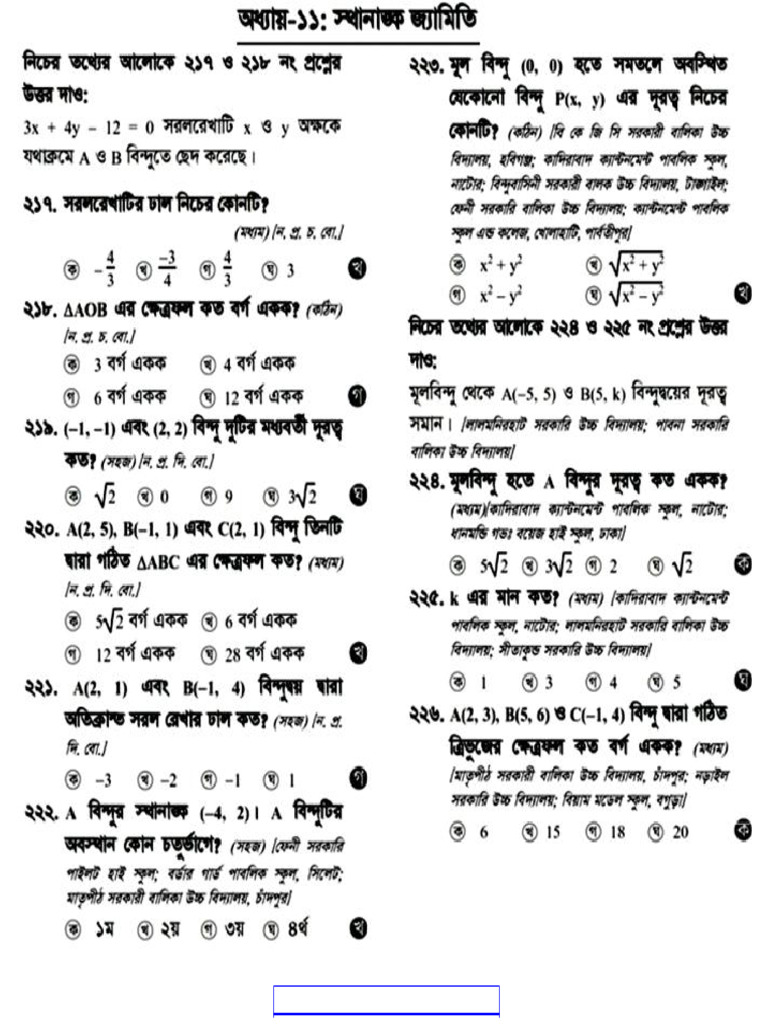 অধ্যায়-১১: স্থানাঙ্ক জ্যামিতি
নিচের তথ্যের আলোকে ২১৭ ও ২১৮ নং প্রশ্নের
উত্তর দাও:
3x + 4y – 12 = 0 সরলরেখাটি x ও y অক্ষকে
যথাক্রমে A ও B বিন্দুতে ছেদ করেছে।
২১৭. সরলরেখাটির ঢাল নিচের কোনটি?
(মধ্যম) [ন. প্র. চ. বো.]
ক -4/3 খ -3/4 গ 4/3 ঘ 3 খ
২১৮. ΔAOB এর ক্ষেত্রফল কত বর্গ একক? (কঠিন)
[ন. প্র. চ. বো.]
ক 3 বর্গ একক খ 4 বর্গ একক
গ 6 বর্গ একক ঘ 12 বর্গ একক গ
২১৯. (–1, –1) এবং (2, 2) বিন্দু দুটির মধ্যবর্তী দূরত্ব
কত? (সহজ) [ন. প্র. দি. বো.]
ক √2 খ 0 গ 9 ঘ 3√2 ঘ
২২০. A(2, 5), B(–1, 1) এবং C(2, 1) বিন্দু তিনটি
দ্বারা গঠিত ΔABC এর ক্ষেত্রফল কত? (মধ্যম)
[ন. প্র. দি. বো.]
ক 5√2 বর্গ একক খ 6 বর্গ একক
গ 12 বর্গ একক ঘ 28 বর্গ একক খ
২২১. A(2, 1) এবং B(–1, 4) বিন্দুদ্বয় দ্বারা
অতিক্রান্ত সরল রেখার ঢাল কত? (সহজ) [ন. প্র.
দি. বো.]
ক –3 খ –2 গ –1 ঘ 1 গ
২২২. A বিন্দুর স্থানাঙ্ক (–4, 2)। A বিন্দুটির
অবস্থান কোন চতুর্ভাগে? (সহজ) [ফেনী সরকারি
পাইলট হাই স্কুল; বর্ডার গার্ড পাবলিক স্কুল, সিলেট;
মাতৃপীঠ সরকারী বালিকা উচ্চ বিদ্যালয়, চাঁদপুর]
ক ১ম খ ২য় গ ৩য় ঘ ৪র্থ খ
২২৩. মূল বিন্দু (0, 0) হতে সমতলে অবস্থিত
যেকোনো বিন্দু P(x, y) এর দূরত্ব নিচের
কোনটি? (কঠিন) [বি কে জি সি সরকারী বালিকা উচ্চ
বিদ্যালয়, হবিগঞ্জ; কাদিরাবাদ ক্যান্টনমেন্ট পাবলিক স্কুল,
নাটোর; বিন্দুবাসিনী সরকারী বালক উচ্চ বিদ্যালয়, টাঙ্গাইল;
ফেনী সরকারি বালিকা উচ্চ বিদ্যালয়; ক্যান্টনমেন্ট পাবলিক
স্কুল এন্ড কলেজ, খোলাহাটি, পার্বতীপুর]
ক x² + y² খ √x² + y²
গ x² – y² ঘ √x² – y² খ
নিচের তথ্যের আলোকে ২২৪ ও ২২৫ নং প্রশ্নের উত্তর
দাও:
মূলবিন্দু থেকে A(–5, 5) ও B(5, k) বিন্দুদ্বয়ের দূরত্ব
সমান। [লালমনিরহাট সরকারি উচ্চ বিদ্যালয়; পাবনা সরকারি
বালিকা উচ্চ বিদ্যালয়]
২২৪. মূলবিন্দু হতে A বিন্দুর দূরত্ব কত একক?
(মধ্যম)[কাদিরাবাদ ক্যান্টনমেন্ট পাবলিক স্কুল, নাটোর;
ধানমন্ডি গভঃ বয়েজ হাই স্কুল, ঢাকা]
ক 5√2 খ 3√2 গ 2 ঘ √2 ক
২২৫. k এর মান কত? (মধ্যম) [কাদিরাবাদ ক্যান্টনমেন্ট
পাবলিক স্কুল, নাটোর; লালমনিরহাট সরকারি বালিকা উচ্চ
বিদ্যালয়; সীতাকুন্ড সরকারি উচ্চ বিদ্যালয়]
ক 1 খ 3 গ 4 ঘ 5 ঘ
২২৬. A(2, 3), B(5, 6) ও C(–1, 4) বিন্দু দ্বারা গঠিত
ত্রিভুজের ক্ষেত্রফল কত বর্গ একক? (মধ্যম)
[মাতৃপীঠ সরকারী বালিকা উচ্চ বিদ্যালয়, চাঁদপুর; নড়াইল
সরকারি উচ্চ বিদ্যালয়; বিয়াম মডেল স্কুল, বগুড়া]
ক 6 খ 15 গ 18 ঘ 20 ক